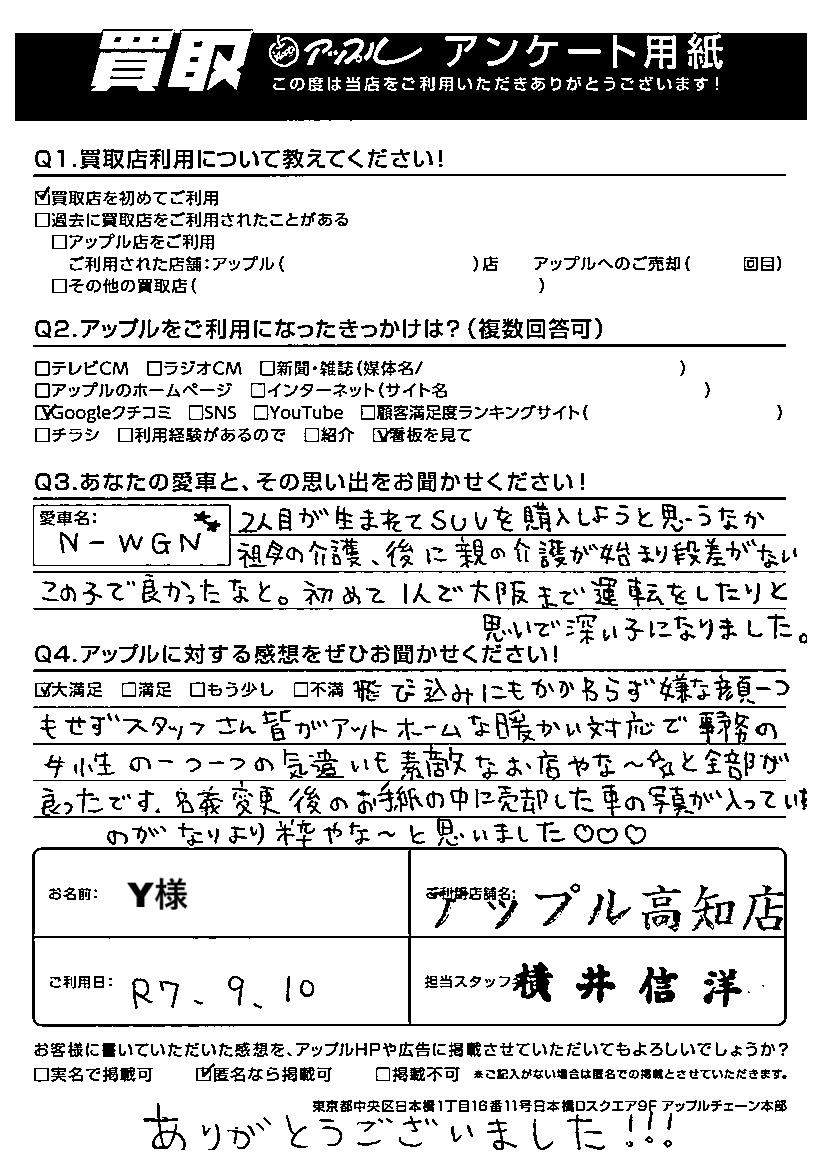 買取 アップル アンケート用紙
この度は当店をご利用いただきありがとうございます!
Q1.買取店利用について教えてください!
☑買取店を初めてご利用
□過去に買取店をご利用されたことがある
□アップル店をご利用
ご利用された店舗:アップル( )店 アップルへのご売却( 回目)
□その他の買取店( )
Q2.アップルをご利用になったきっかけは?(複数回答可)
□テレビCM □ラジオCM □新聞・雑誌(媒体名/ )
□アップルのホームページ □インターネット(サイト名 )
☑Googleクチコミ □SNS □YouTube □顧客満足度ランキングサイト( )
□チラシ □利用経験があるので □紹介 ☑看板を見て
Q3.あなたの愛車と、その思い出をお聞かせください!
愛車名: N-WGN
2人目が生まれてSUVを購入しようと思うなか
祖母の介護、後に親の介護が始まり段差がない
この子で良かったなと。初めて1人で大阪まで運転をしたりと
思いで深い子になりました。
Q4.アップルに対する感想をぜひお聞かせください!
☑大満足 □満足 □もう少し □不満 飛び込みにもかかわらず嫌な顔一つ
もせずスタッフさん皆がアットホームな暖かい対応で事務の
女性の一つ一つの気遣いも素敵なお店やな〜☆と全部が
良ったです。名義変更後のお手紙の中に売却した車の写真が入ってい
のがなりより粋やな〜と思いました♡♡♡
お名前: Y様
ご利用店舗名: アップル高知店
ご利用日: R7、9、10
担当スタッフ: 横井信洋
お客様に書いていただいた感想を、アップルHPや広告に掲載させていただいてもよろしいでしょうか?
□実名で掲載可 ☑匿名なら掲載可 □掲載不可 ※ご記入がない場合は匿名での掲載とさせていただきます。
東京都中央区日本橋1丁目16番11号日本橋Dスクエア9F アップルチェーン本部
ありがとうございました!!!